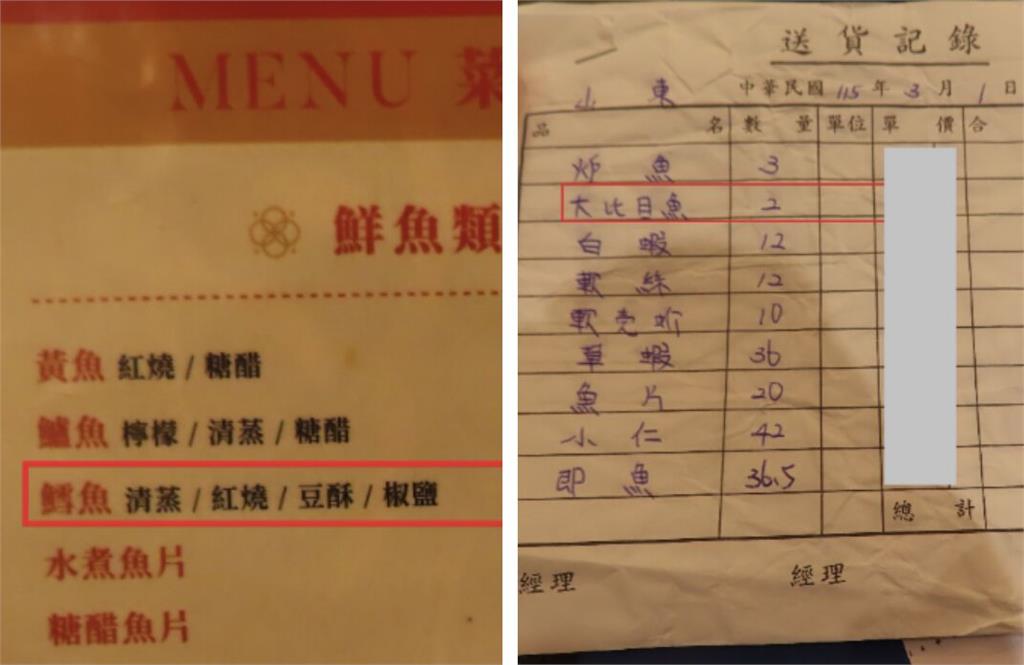 MENU 菜
鮮魚類
黃魚 紅燒 / 糖醋
鱸魚 檸檬 / 清蒸 / 糖醋
鱈魚 清蒸 / 紅燒 / 豆酥 / 椒鹽
水煮魚片
糖醋魚片
送貨記錄
山東 中華民國 115 年 3 月 1 日
品名 數量 單位 單價 合
魚 3
大比目魚 2
白蝦 12
軟絲 12
軟壳 10
草蝦 36
魚片 20
小仁 42
即魚 36.5
總計
經理 經理